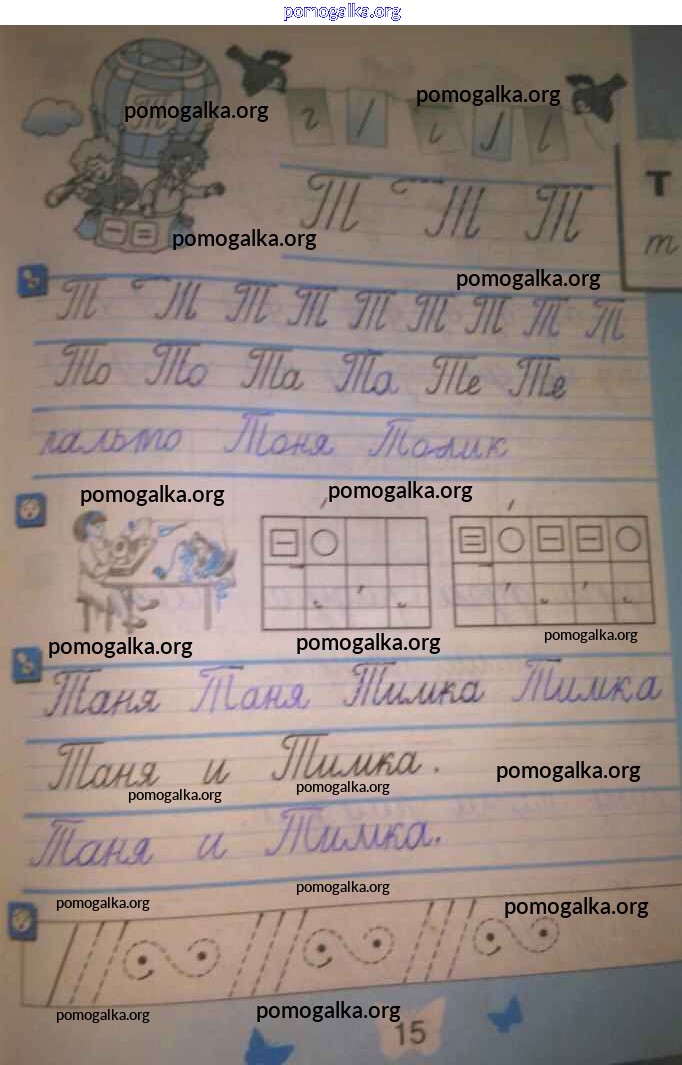 pomogalka.org
pomogalka.org
pomogalka.org
Т
г
Т Т Т
Т
т
pomogalka.org
pomogalka.org
Т Т Т Т Т Т Т Т Т
То То Та Та Те Те
пальто Тоня Толик
pomogalka.org
pomogalka.org
pomogalka.org
pomogalka.org
pomogalka.org
Таня Таня Тимка Тимка
Таня и Тимка.
pomogalka.org
pomogalka.org
pomogalka.org
Таня и Тимка.
pomogalka.org
pomogalka.org
pomogalka.org
pomogalka.org
pomogalka.org
15